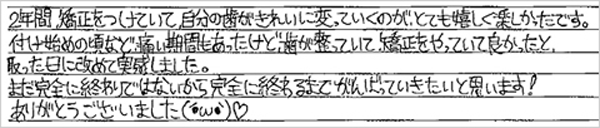 2年間、矯正をつけていて、自分の歯がきれいに変っていくのが、とても嬉しく楽しかったです。
付け始めの頃など、痛い期間もあったけど歯が整っていて、矯正をやっていて良かったと、
取った日に改めて実感しました。
まだ完全に終わりではないから完全に終わるまでがんばっていきたいと思います!
ありがとうございました(•ω•)♡